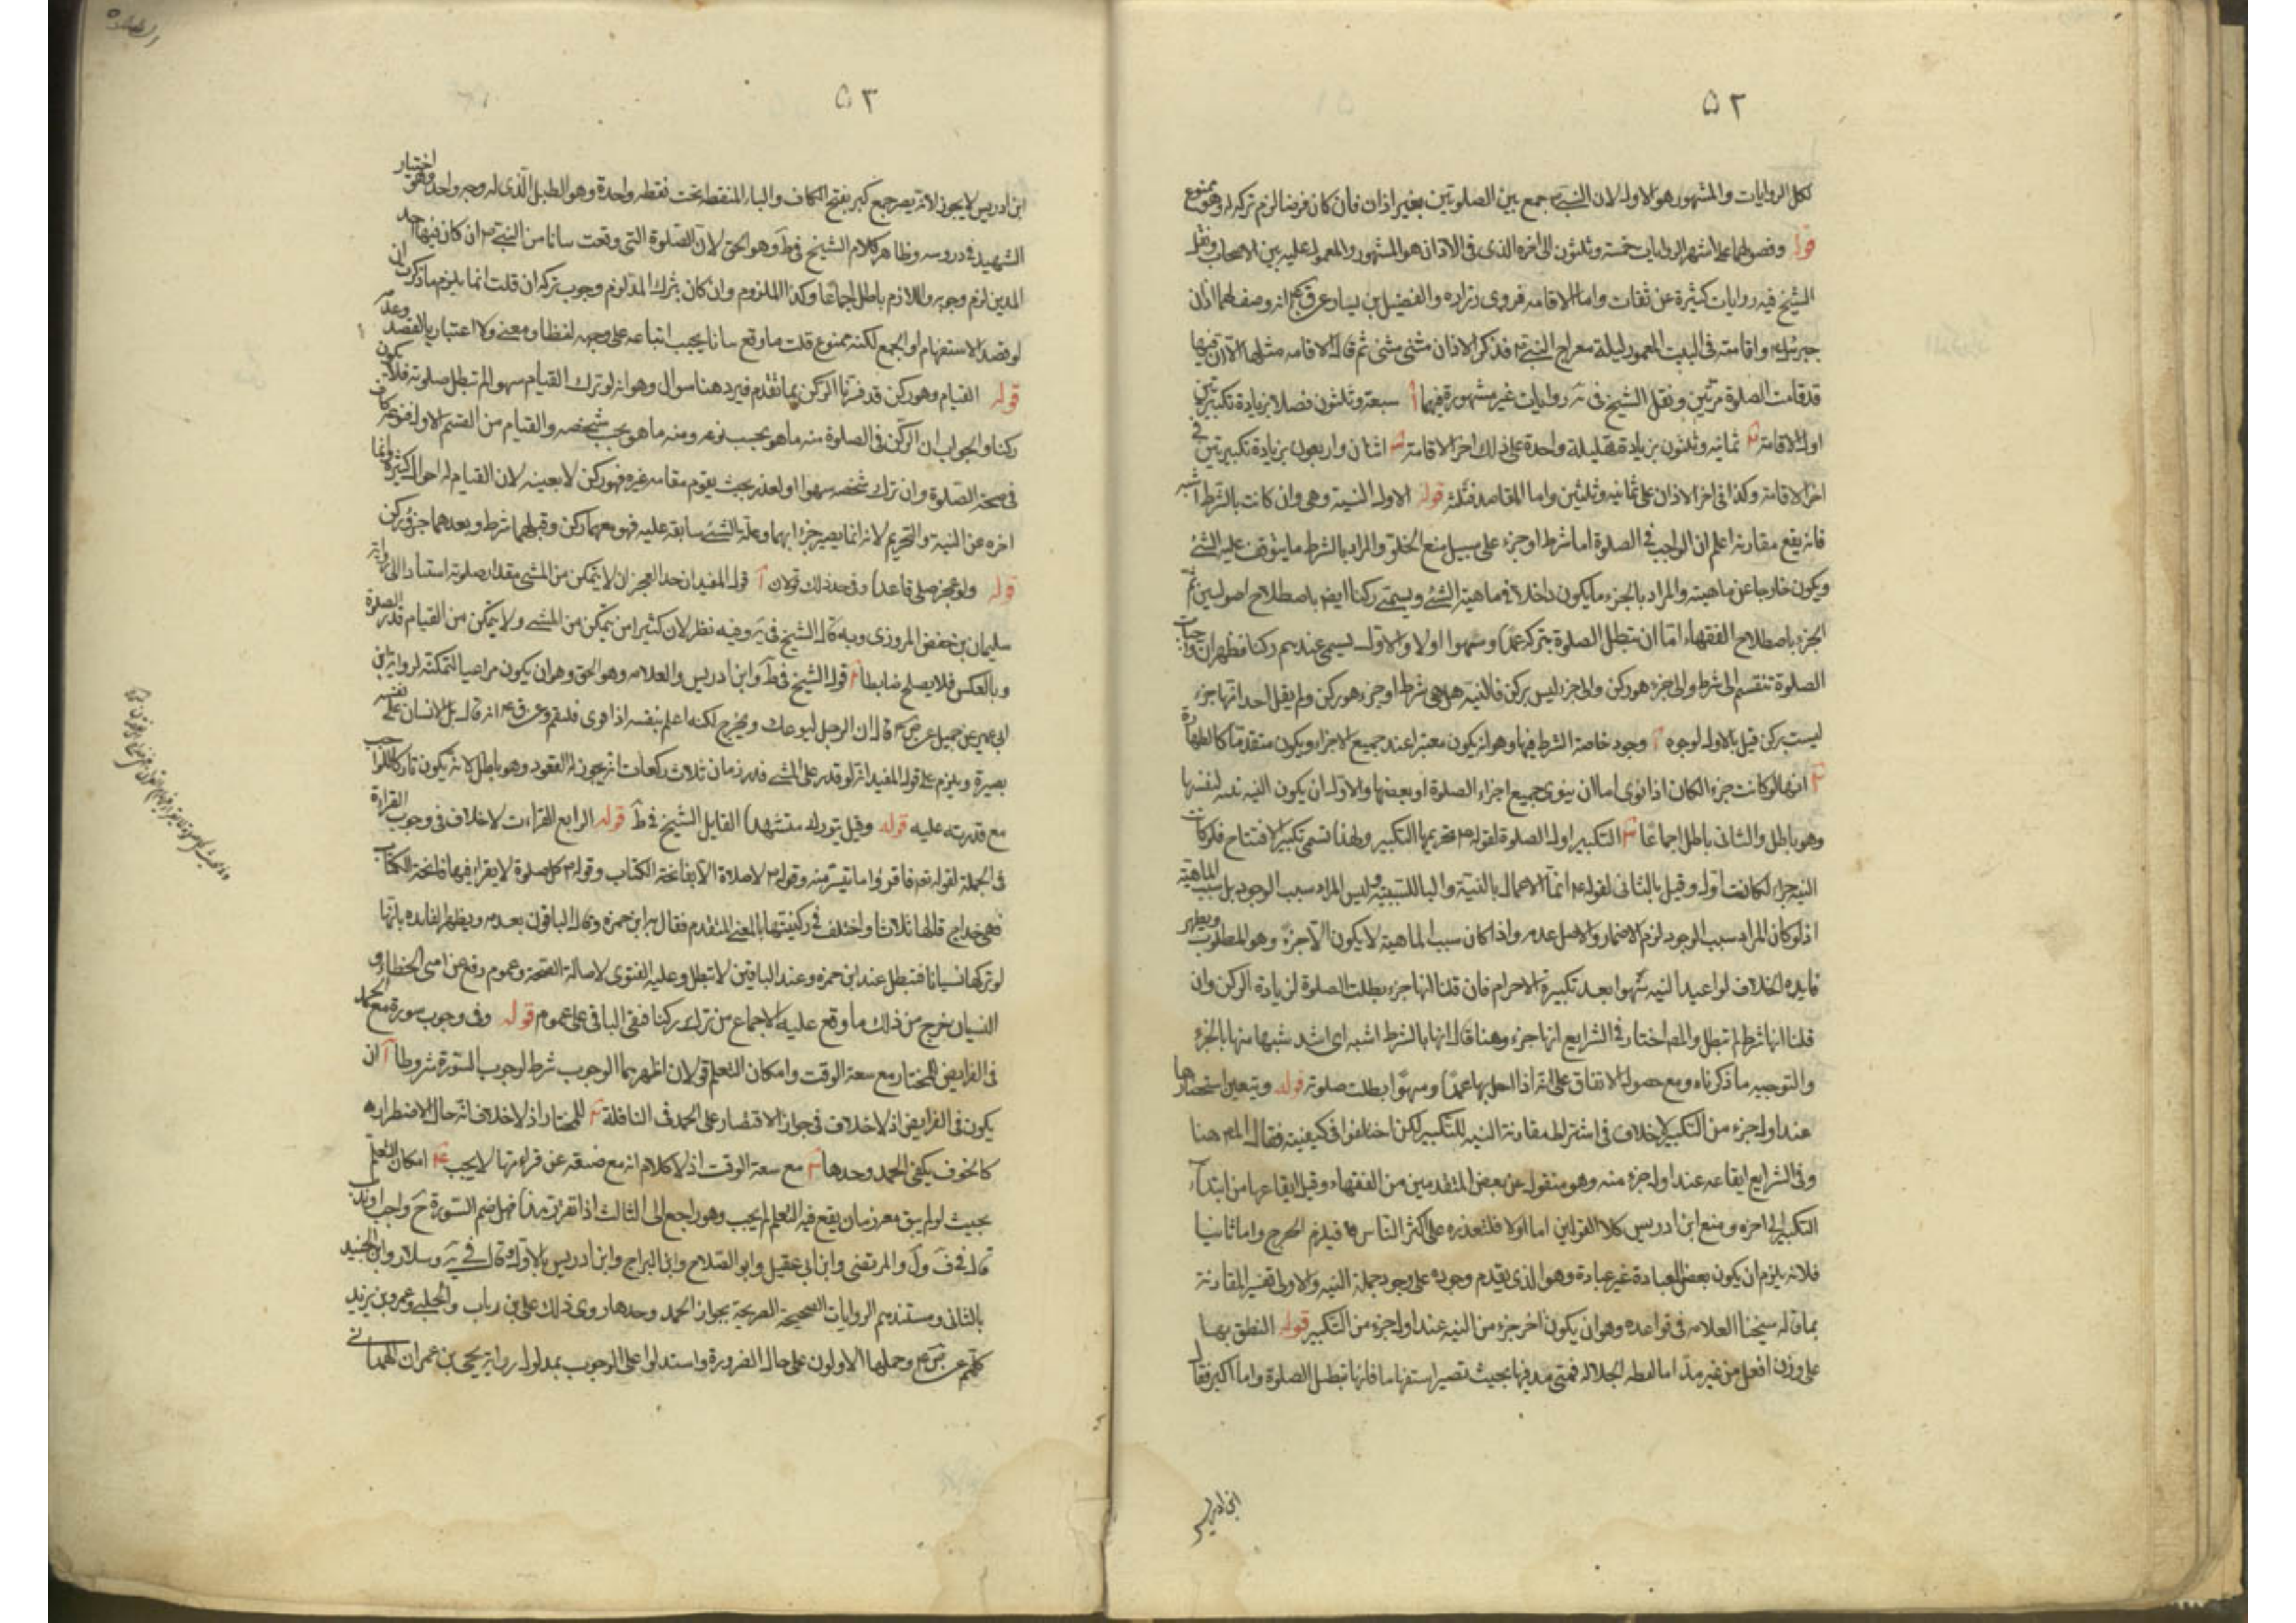 ٥٢
لكل الروايات والمشهور هو الاول لان النبي ص جمع بين الصلوتين بغير اذان فان كان فرضا لزم تركه له وهو ممنوع
قوله وفصولهما على اشهر الروايات خمسة وثلثون الى اخره الذى فى الاذان هو المشهور والمعمول عليه بين الاصحاب ونقل
الشيخ فيه روايات كثيرة عن ثقات واما الاقامة فروى زراره والفضيل بن يسار انه وصف لهما اذان
جبرئيل واقامته فى البيت المعمور ليلة معراج النبي ص فذكر الاذان مثنى مثنى ثم قال الاقامه مثلها الا ان فيها
قد قامت الصلوة مرتين ونقل الشيخ فى يه روايات غير مشهورة فيهما آ سبعة وثلثون فصلا بزيادة تكبيرتين
اول الاقامة ب ثمانيه وثلثون بزيادة تهليلة واحدة على ذلك اخر الاقامة اثنان واربعون بزيادة تكبيرتين فى
اخر الاقامة وكذا فى اخر الاذان على ثمانيه وثلثين واما المقاصد فثلثة قوله الاول النية وهى وان كانت بالشرط اشبه
فانه يقع مقارنة اعلم ان الواجب فى الصلوة اما شرط او جزء على سبيل منع الخلو والمراد بالشرط ما يتوقف عليه الشئ
ويكون خارجا عن ماهيته والمراد بالجزء ما يكون داخلا فى ماهية الشئ ويسمى ركنا ايضا باصطلاح اصوليين ثم
الجزء باصطلاح الفقهاء اما ان تبطل الصلوة بتركه عمدا وسهوا اولا والاول يسمى عندهم ركنا فظهر ان واجبات
الصلوة تنقسم الى شرط والى جزء هو ركن والى جزء ليس بركن فالنية هل هى شرط او جزء هو ركن ولم يقل احد انها جزء
ليست بركن قيل بالاول لوجوه آ وجود خاصة الشرط فيها وهو ان يكون معتبرا عند جميع الاجزاء ويكون متقدما كالطهارة
ب انها لو كانت جزء لكان اذا نوى اما ان ينوى جميع اجزاء الصلوة او بعضها والاول ان يكون النيه لنفسها
وهو باطل والثانى باطل اجماعا التكبير اول الصلوة لقوله تحريمها التكبير ولهذا تسمى تكبير الافتتاح فلو كانت
النيه جزء لكانت اول وقيل بالثانى لقوله انما الاعمال بالنية والبا للسببية وليس المراد سبب الوجود بل سبب الماهية
اذ لو كان المراد سبب الوجود لزم الاضمار والاصل عدمه واذا كان سبب الماهية لا يكون الا جزء وهو المطلوب ويظهر
فايده الخلاف لو اعيد النيه سهوا بعد تكبيرة الاحرام فان قلنا انها جزء بطلت الصلوة لزيادة الركن وان
قلنا انها شرط لم تبطل والمص اختار فى الشرايع انها جزء وهنا قال انها بالشرط اشبه اى اشد شبها منها بالجزء
والتوجيه ما ذكرناه ومع حصول الاتفاق على انه اذا اخل بها عمدا وسهوا بطلت صلوته قوله ويتعين استحضارها
عند اول جزء من التكبير لا خلاف فى اشتراط مقارنة النيه للتكبير لكن اختلفوا فى كيفيته فقال المص هنا
وفى الشرايع ايقاعه عند اول جزء منه وهو منقول عن بعض المتقدمين من الفقهاء وقيل ايقاعها من ابتداء
التكبير الى اخره ومنع ابن ادريس كلا القولين اما اولا فلتعذره على اكثر الناس فيلزم الحرج واما ثانيا
فلانه يلزم ان يكون بعض العبادة غير عبادة وهو الذى يقدم وجوده على وجود جملة النيه والاولى تفسير المقارنة
بما قاله شيخنا العلامه فى قواعده وهو ان يكون اخر جزء من النيه عند اول جزء من التكبير قوله النطق بها
على وزن افعل من غير مد اما لفظه الجلاله فمتى مد فيها بحيث تصير استفهاما فانها تبطل الصلوة واما اكبر فقال
ابن ادريس
٥٣
ابن ادريس لا يجوز لانه يصير جمع كبر بفتح الكاف والبا المنقطه تحت نقطه واحدة وهو الطبل الذى له وجه واحد وهو اختيار
الشهيد فى دروسه وظاهر كلام الشيخ فى ط وهو الحق لان الصلوة التى وقعت بيانا من النبي ص ان كان فيها احد
المدين لزم وجوبه واللازم باطل اجماعا وكذا الملزوم وان كان بترك المد لزم وجوب تركه ان قلت انما يلزم ما ذكرت ان
لو قصد الاستفهام او الجمع لكنه ممنوع قلت ما وقع بيانا يجب اتباعه على وجهه لفظا ومعنى ولا اعتبار بالقصد وعدمه
قوله القيام وهو ركن قد فسرنا الركن بما تقدم فيرد هنا سوال وهو انه لو ترك القيام سهوا لم تبطل صلوته فلا يكون
ركنا والجواب ان الركن فى الصلوة منه ما هو بحسب نوعه ومنه ما هو بحسب شخصه والقيام من القسم الاول فنوعه كاف
فى صحة الصلوة وان ترك شخصه سهوا او لعذر بحيث يقوم مقامه غيره فهو ركن لا بعينه لان القيام له احوال كثيرة وانما
اخره عن النية والتحريم لانه انما يصير جزءا بهما وعلة الشئ سابقه عليه فهو معهما ركن وقبلهما شرط وبعدهما جزء ركن
قوله ولو عجز صلى قاعدا وفى حد ذلك قولان آ قول المفيد ان حد العجز ان لا يتمكن من المشى مقدار صلوته استنادا الى رواية
سليمان بن حفص المروزى وبه قال الشيخ فى يه وفيه نظر لان كثيرا من يتمكن من المشى ولا يتمكن من القيام قدر الصلوة
وبالعكس فلا يصلح ضابطا ب قول الشيخ فى ط وابن ادريس والعلامه وهو الحق وهو ان يكون مراعيا لتمكنه لرواية ابن
ابى عمير عن جميل قال ان الرجل ليوعك ويخرج لكنه اعلم بنفسه اذا قوى فليقم وعن ق انه قال بل الانسان على نفسه
بصيرة ويلزم على قول المفيد انه لو قدر على المشى قدر زمان ثلاث ركعات انه يجوز له القعود وهو باطل لانه يكون تاركا للواجب
مع قدرته عليه قوله وقيل يتورك متشهدا القايل الشيخ فى ط قوله الرابع القراءت لا خلاف فى وجوب القراءة
فى الجملة لقوله تعم فاقرؤا ما تيسر منه وقوله لا صلاة الا بفاتحة الكتاب وقوله كل صلوة لا يقراء فيها فاتحة الكتاب
فهى خداج قالها ثلاثا واختلف فى ركنيتها بالمعنى المتقدم فقال به ابن حمزه وقال الباقون بعدمه ويظهر الفايده بانها
لو تركها نسيانا فتبطل عند ابن حمزه وعند الباقين لا تبطل وعليه الفتوى لاصالة الصحة وعموم رفع عن امتى الخطا و
النسيان خرج من ذلك ما وقع عليه الاجماع من ترك ركنا فبقى الباقى على عموم قوله وفى وجوب سورة مع الحمد
فى الفرايض للمختار مع سعة الوقت وامكان التعلم قولان اظهرهما الوجوب شرط لوجوب السورة شروطا آ ان
يكون فى الفرايض اذ لا خلاف فى جواز الاقتصار على الحمد فى النافلة ب للمختار اذ لا خلاف انه حال الاضطراره
كالخوف يكفى الحمد وحدها مع سعة الوقت اذ لا كلام انه مع ضيقه عن قراءتها لا يجب امكان التعلم
بحيث لو لم يبق معه زمان يقع فيه التعلم لم يجب وهو راجع الى الثالث اذا تقرر هذا فهل ضم السورة ح واجب او ندب
قال فى ف ول والمرتضى وابن ابى عقيل وابو الصلاح وابن البراج وابن ادريس بالاول وقال فى يه وسلار وابن الجنيد
بالثانى ومستندهم الروايات الصحيحة الصريحة بجواز الحمد وحدها روى ذلك على بن رباب والحلبى وعمرو بن يزيد
كلهم عن ص وحملها الاولون على حال الضرورة واستدلوا على الوجوب بمدلول رواية يحيى بن عمران الهمدانى